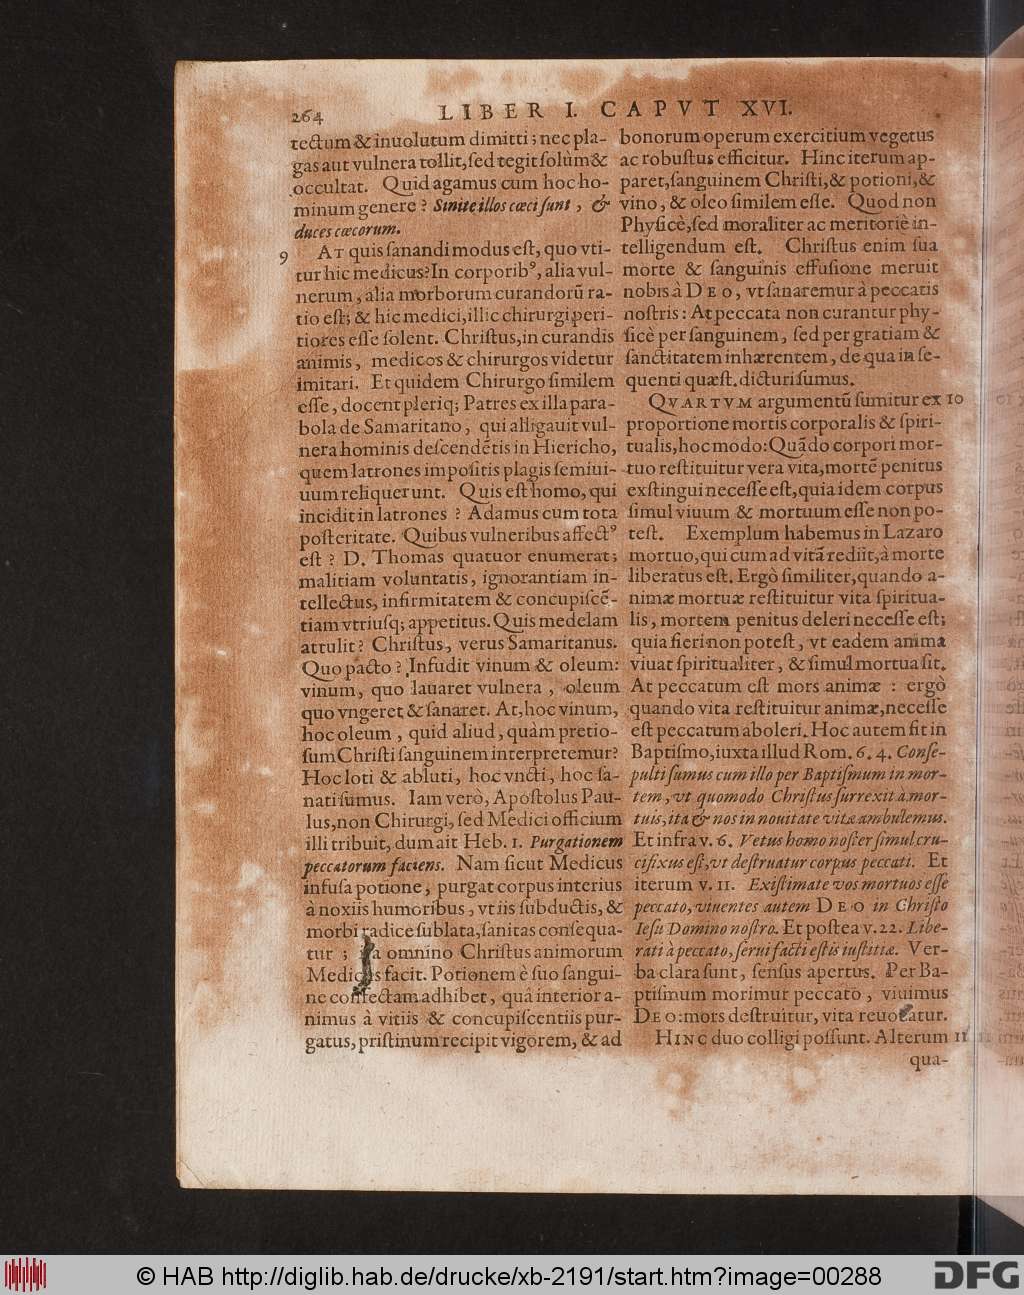 264
LIBER I. CAPVT XVI.
tectum & inuolutum dimitti; nec pla-
gas aut vulnera tollit, sed tegit solùm &
occultat. Quid agamus cum hoc ho-
minum genere? Sinite illos cæci sunt, &
duces cæcorum.
9
AT quis sanandi modus est, quo vti-
tur hic medicus? In corporibꝰ, alia vul-
nerum, alia morborum curandorū ra-
tio est; & hic medici, illic chirurgi peri-
tiores esse solent. Christus, in curandis
animis, medicos & chirurgos videtur
imitari. Et quidem Chirurgo similem
esse, docent pleriq; Patres ex illa para-
bola de Samaritano, qui alligauit vul-
nera hominis descendētis in Hiericho,
quem latrones impositis plagis semiui-
uum reliquerunt. Quis est homo, qui
incidit in latrones? Adamus cum tota
posteritate. Quibus vulneribus affectꝰ
est? D. Thomas quatuor enumerat;
malitiam voluntatis, ignorantiam in-
tellectus, infirmitatem & concupiscē-
tiam vtriusq; appetitus. Quis medelam
attulit? Christus, verus Samaritanus.
Quo pacto? Infudit vinum & oleum:
vinum, quo lauaret vulnera, oleum
quo vngeret & sanaret. At, hoc vinum,
hoc oleum, quid aliud, quàm pretio-
sum Christi sanguinem interpretemur?
Hoc loti & abluti, hoc vncti, hoc sa-
nati sumus. Iam verò, Apostolus Pau-
lus, non Chirurgi, sed Medici officium
illi tribuit, dum ait Heb. 1. Purgationem
peccatorum faciens. Nam sicut Medicus
infusa potione, purgat corpus interius
à noxiis humoribus, vt iis subductis, &
morbi radice sublata, sanitas consequa-
tur; ita omnino Christus animorum
Medicus facit. Potionem è suo sangui-
ne confectam adhibet, quâ interior a-
nimus à vitiis & concupiscentiis pur-
gatus, pristinum recipit vigorem, & ad
bonorum operum exercitium vegetus
ac robustus efficitur. Hinc iterum ap-
paret, sanguinem Christi, & potioni, &
vino, & oleo similem esse. Quod non
Physicè, sed moraliter ac meritoriè in-
telligendum est. Christus enim sua
morte & sanguinis effusione meruit
nobis à DEO, vt sanaremur à peccatis
nostris: At peccata non curantur phy-
sicè per sanguinem, sed per gratiam &
sanctitatem inhærentem, de qua in se-
quenti quæst. dicturi sumus.
QVARTVM argumentū sumitur ex 10
proportione mortis corporalis & spiri-
tualis, hoc modo: Quãdo corpori mor-
tuo restituitur vera vita, mortē penitus
exstingui necesse est, quia idem corpus
simul viuum & mortuum esse non po-
test. Exemplum habemus in Lazaro
mortuo, qui cum ad vitã rediit, à morte
liberatus est. Ergò similiter, quando a-
nimæ mortuæ restituitur vita spiritua-
lis, mortem penitus deleri necesse est;
quia fieri non potest, vt eadem anima
viuat spiritualiter, & simul mortua sit.
At peccatum est mors animæ: ergò
quando vita restituitur animæ, necesse
est peccatum aboleri. Hoc autem fit in
Baptismo, iuxta illud Rom. 6. 4. Conse-
pulti sumus cum illo per Baptismum in mor-
tem, vt quomodo Christus surrexit à mor-
tuis, ita & nos in nouitate vitæ ambulemus.
Et infra v. 6. Vetus homo noster simul cru-
cifixus est, vt destruatur corpus peccati. Et
iterum v. 11. Existimate vos mortuos esse
peccato, viuentes autem DEO in Christo
Iesu Domino nostro. Et postea v. 22. Libe-
rati à peccato, serui facti estis iustitiæ. Ver-
ba clara sunt, sensus apertus. Per Ba-
ptismum morimur peccato, viuimus
DEO: mors destruitur, vita reuocatur.
HINC duo colligi possunt. Alterum 11
qua-
© HAB http://diglib.hab.de/drucke/xb-2191/start.htm?image=00288
DFG